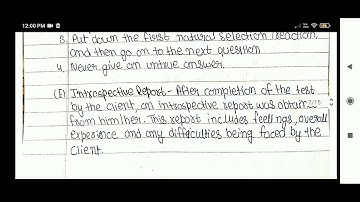 12:00 PM
3. Put down the first natural selection reaction,
and then go on to the next question
4. Never give an untrue answer.
(E) Introspective Report - After completion of the test
by the client, an introspective report was obtain
from him/her. This report includes feelings, overall
experience and any difficulties being faced by the
client.